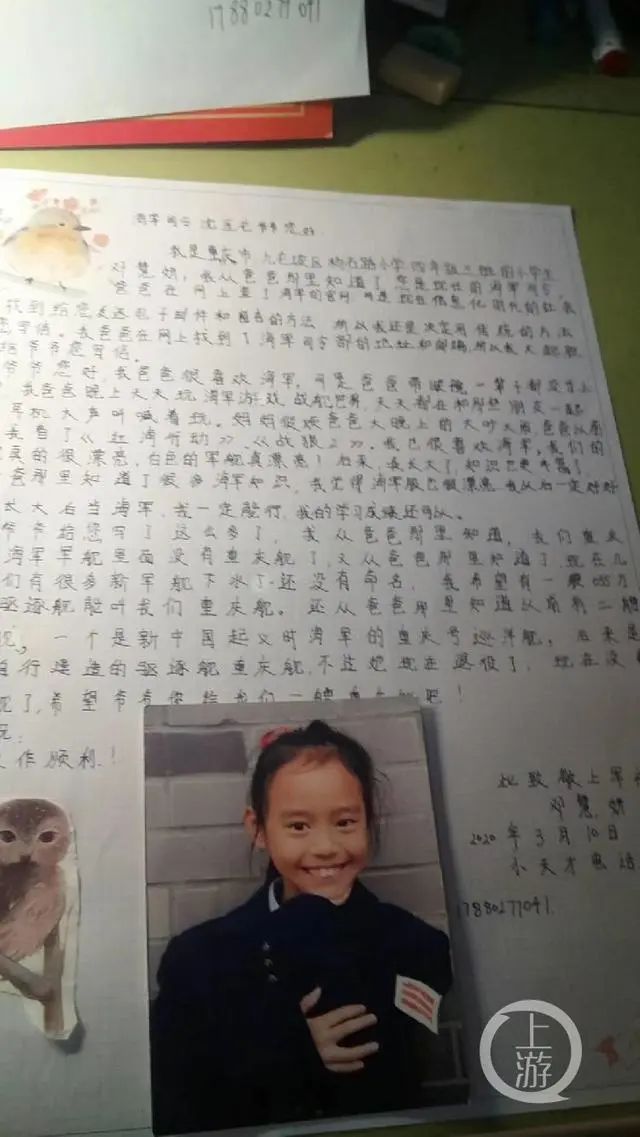 17880277041
海军司令 沈金龙爷爷您好：
我是重庆市 九龙坡区杨石路小学四年级三班的小学生
邓慧妍，我从爸爸那里知道了您是现任的海军司令，
爸爸在网上查了海军的官网 可是 现在信息化时代的社会
找到给您发送电子邮件和留言的方法 所以我还是决定用传统的方法
写信。我爸爸在网上找到了海军司令部的地址和邮编，所以我大胆敢
给爷爷您写信。
爷爷您好，我爸爸很喜欢海军，可是爸爸带眼镜，一辈子都没当上
我爸爸晚上天天玩海军游戏 战舰世界，天天都在和那些朋友一起
耳机大声叫喊着玩。妈妈很不欢爸爸大晚上的大吵大闹，爸爸以前
我看了《红海行动》《战狼2》。我也很喜欢海军。我们的
真的很漂亮，白色的军舰真漂亮！后来，我长大了，知识也更丰富了，
爸那里知道了很多海军知识，我觉得海军服也很漂亮 我以后一定好好
长大后当海军，我一定能行，我的学习成绩还可以。
爷爷给您写了这么多了，我从爸爸那里知道，我们重庆
海军军舰里面没有重庆舰了，又从爸爸那里知道了，现在几
们有很多新军舰下水了，还没有命名，我希望有一艘055万
驱逐舰能叫我们重庆舰。还从爸爸那里知道以前有二艘
舰，一个是新中国起义时海军的重庆号巡洋舰，后来是
自行建造的驱逐舰重庆舰，不过她现在退役了，现在没
舰了，希望爷爷你给我们一艘重庆舰吧！
祝：
工作顺利！
此致敬上军礼
邓慧妍
2020年3月10日
小天才电话
17880277041.
上游